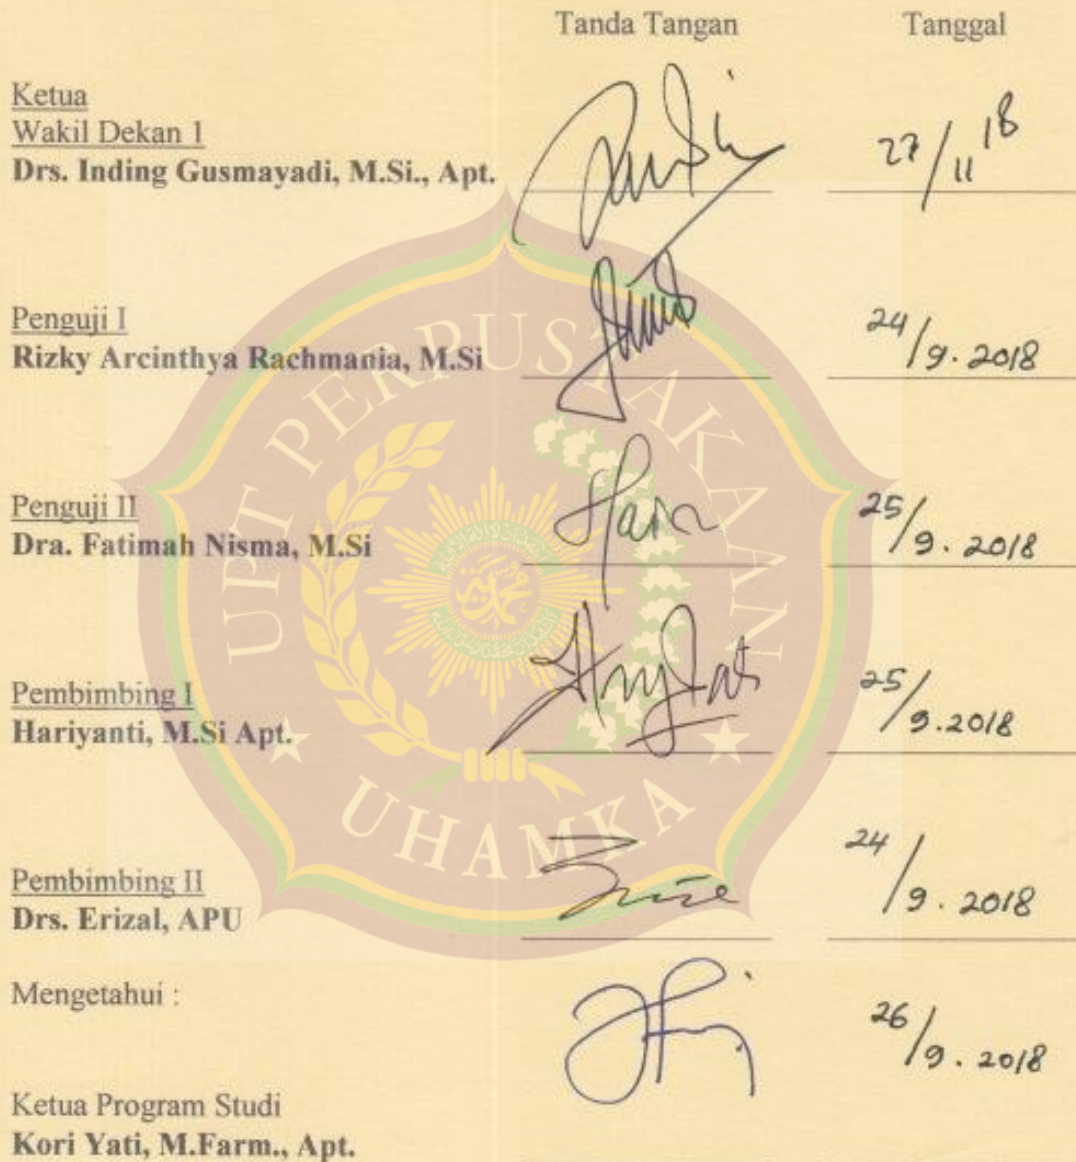 Tanda Tangan Tanggal
Ketua
Wakil Dekan 1
Drs. Inding Gusmayadi, M.Si., Apt. 27/11 18
Penguji I
Rizky Arcinthya Rachmania, M.Si 24/9. 2018
Penguji II
Dra. Fatimah Nisma, M.Si 25/9. 2018
Pembimbing I
Hariyanti, M.Si Apt. 25/9.2018
Pembimbing II
Drs. Erizal, APU 24/9. 2018
Mengetahui : 26/9. 2018
Ketua Program Studi
Kori Yati, M.Farm., Apt.
UPT PERPUSTAKAAN
UHAMKA